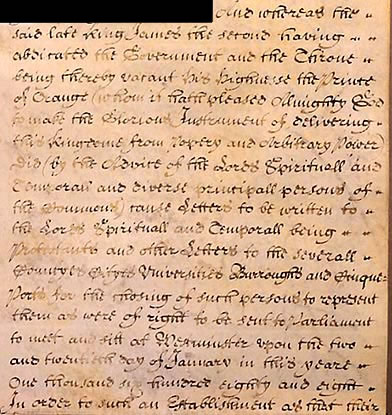 And whereas the
said late King James the second having
abdicated the Government and the Throne
being thereby vacant his Highnesse the Prince
of Orange (whom it hath pleased Almighty God
to make the Glorious Instrument of delivering
this Kingdome from Popery and Arbitrary Power)
did (by the Advice of the Lords Spirituall and
Temporall and diverse principall persons of
the Commons) cause Letters to be written to
the Lords Spirituall and Temporall being
Protestants and other Letters to the severall
Countyes Cityes Universities Burroughs and Cinque
Ports for the chosing of such persons to represent
them as were of right to be sent to Parliament
to meet and sitt at Westminster upon the two
and twentieth day of January in this yeare
One thousand six hundred eighty and eight
In order to such an Establishment as that their